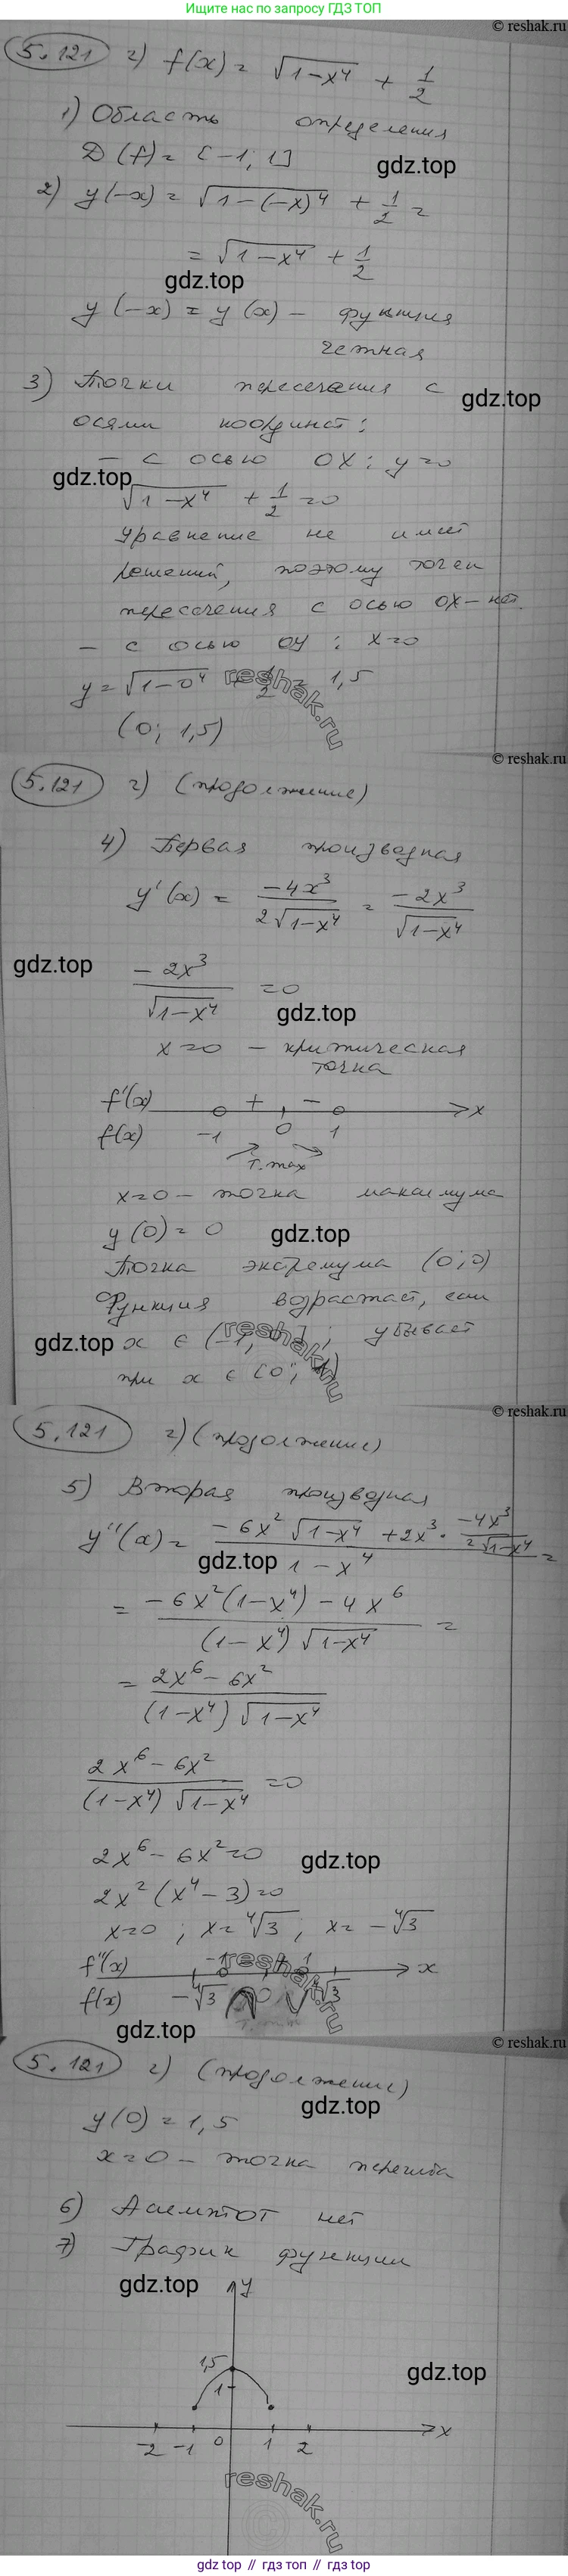 Ищите нас по запросу ГДЗ ТОП
© reshak.ru
5.121 г) f(x) = √(1-x⁴) + 1/2
1) Область определения
D(f) = [-1; 1]
gdz.top
2) y(-x) = √(1-(-x)⁴) + 1/2 =
= √(1-x⁴) + 1/2
gdz.top
y(-x) = y(x) - функция
четная
3) Точки пересечения с
gdz.top
осями координат:
- с осью OX: y=0
gdz.top
√(1-x⁴) + 1/2 = 0
уравнение не имеет
решений, поэтому точек
пересечения с осью OX - нет.
- с осью OY: x=0
y = √(1-0⁴) + 1/2 = 1,5
reshak.ru
(0; 1,5)
© reshak.ru
5.121 г) (продолжение)
4) Первая производная
y'(x) = -4x³/(2√(1-x⁴)) = -2x³/√(1-x⁴)
gdz.top
-2x³/√(1-x⁴) = 0
gdz.top
x=0 - критическая
точка
f'(x) + - x
f(x) -1 0 1
т. max
x=0 - точка максимума
y(0) = 0
gdz.top
Точка экстремума (0;0)
Функция возрастает, если
gdz.top
x ∈ (-1; 0]; убывает
reshak.ru
при x ∈ [0; 1)
© reshak.ru
5.121 г) (продолжение)
5) Вторая производная
y''(x) = (-6x²√(1-x⁴) + 2x³ · -4x³/(2√(1-x⁴)))/(1-x⁴) =
gdz.top
= (-6x²(1-x⁴) - 4x⁶)/((1-x⁴)√(1-x⁴)) =
= (2x⁶-6x²)/((1-x⁴)√(1-x⁴))
(2x⁶-6x²)/((1-x⁴)√(1-x⁴)) = 0
2x⁶ - 6x² = 0
gdz.top
2x²(x⁴-3) = 0
x=0; x=⁴√3; x=-⁴√3
f''(x) -1 1 x
reshak.ru
f(x) -⁴√3 0 ⁴√3
gdz.top
© reshak.ru
5.121 г) (продолжение)
gdz.top
y(0) = 1,5
x=0 - точка перегиба
6) Асимптот нет
7) График функции
gdz.top
y
1,5
gdz.top
1
-2 -1 0 1 2 x
reshak.ru
gdz.top // гдз топ // gdz.top